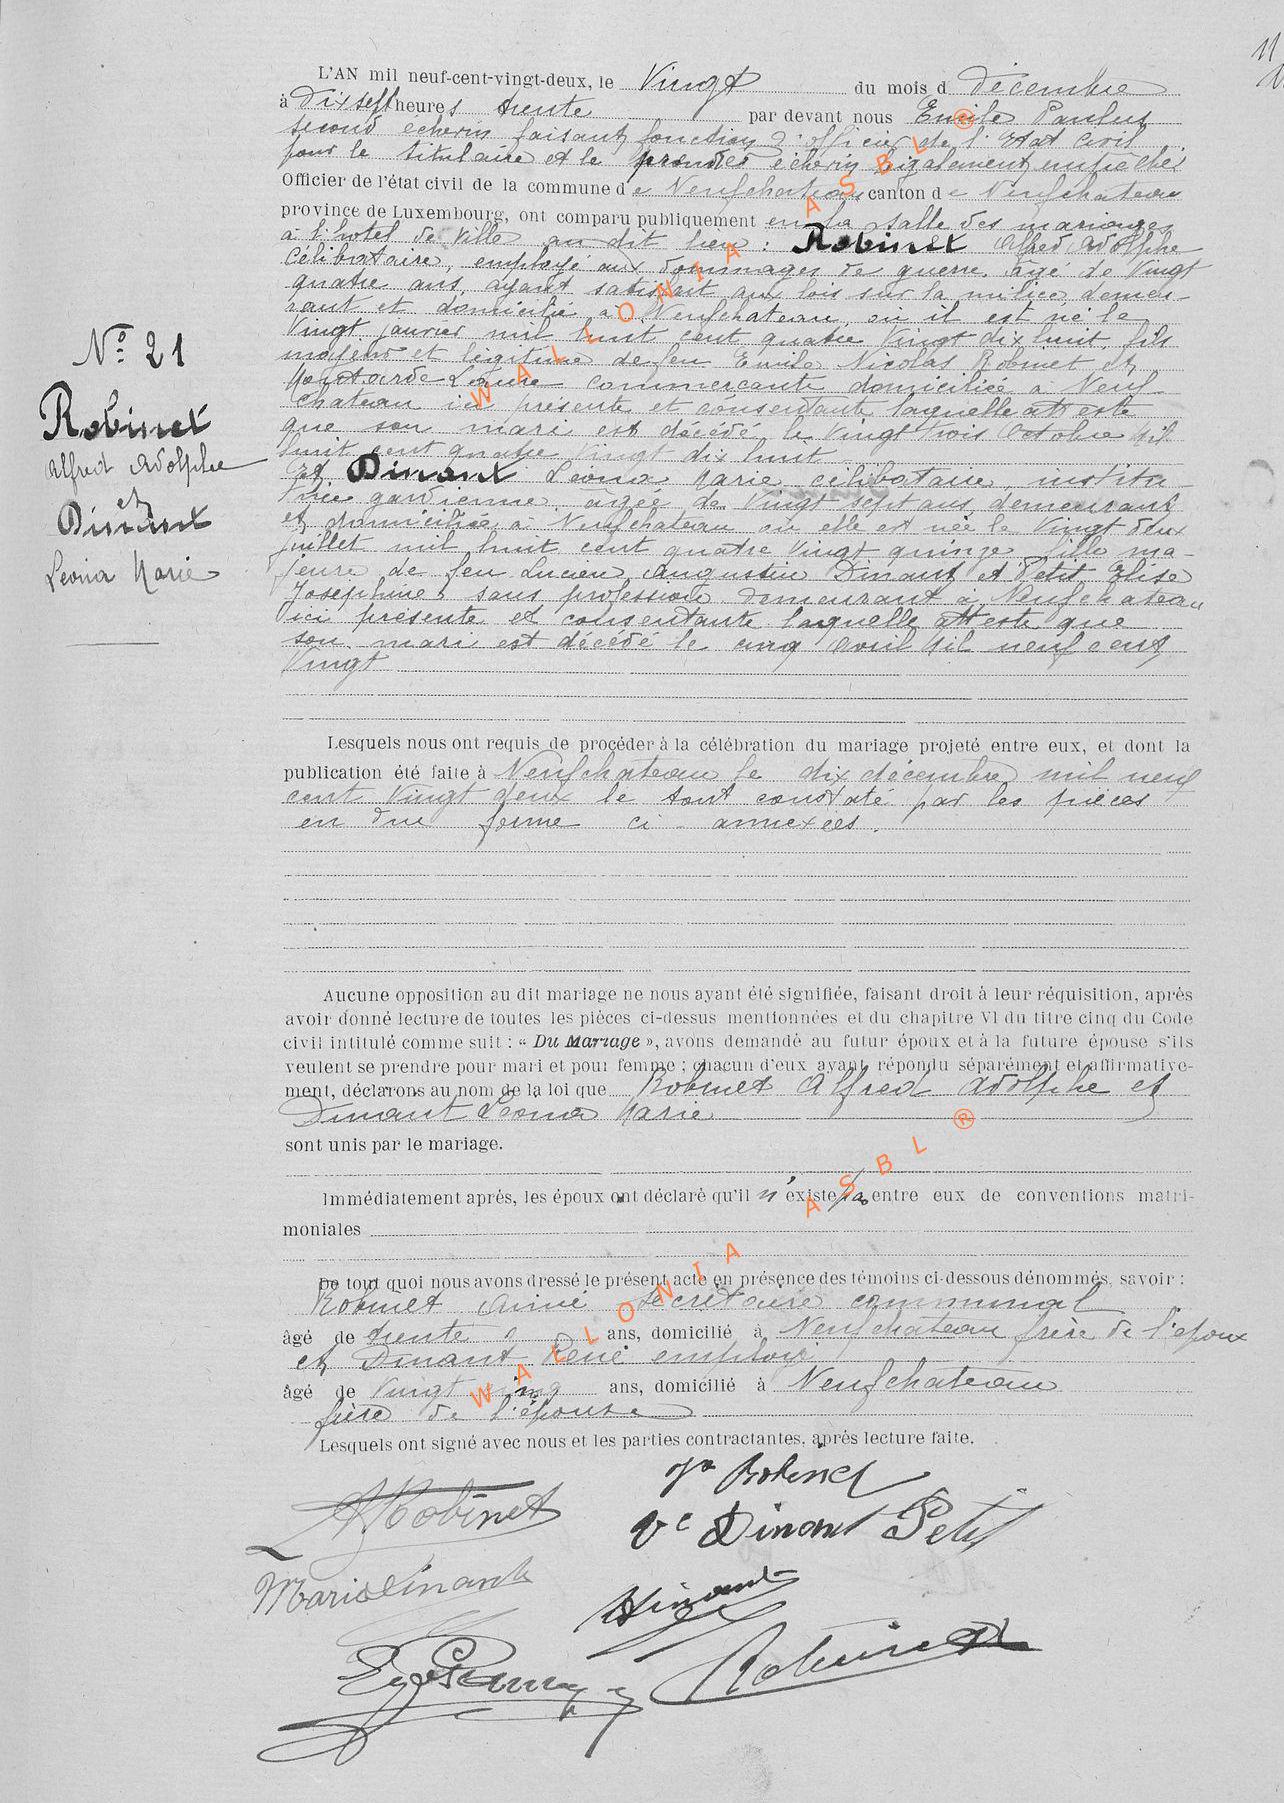 L'AN mil neuf-cent-vingt-deux, le Vingt du mois d décembre
à Dixsept heures trente par devant nous Emile Paulus
second échevin faisant fonction d'officier de l'Etat Civil
pour le titulaire et le premier échevin légalement empêchés
Officier de l'état civil de la commune de Neufchateau canton de Neufchateau
province de Luxembourg, ont comparu publiquement en la salle des mariages
à l'hotel de ville au dit lieu : Robinet Alfred Adolphe
célibataire, employé aux dommages de guerre, âgé de Vingt
quatre ans, ayant satisfait aux lois sur la milice, demeu-
rant et domicilié à Neufchateau, où il est né le
Vingt janvier mil huit cent quatre Vingt dix huit fils
majeur et légitime de feu Emile Nicolas Robinet et
Laure commerçante domiciliée à Neuf
chateau ici présente et consentante laquelle atteste
que son mari est décédé le Vingt trois Octobre Mil
huit cent quatre Vingt dix huit
Et Dinant Léona Marie célibataire, institu-
trice gardienne, âgée de Vingt sept ans, demeurant
et domiciliée à Neufchateau où elle est née le Vingt deux
juillet mil huit cent quatre Vingt quinze, fille ma-
jeure de feu Lucien Augustin Dinant et Petit Elise
Joséphine, sans profession demeurant à Neufchateau
ici présente et consentante laquelle atteste que
son mari est décédé le cinq Avril Mil neuf cent
Vingt
N° 21
Robinet
Alfred Adolphe
et
Dinant
Leona Marie
Lesquels nous ont requis de procéder à la célébration du mariage projeté entre eux, et dont la
publication été faite à Neufchateau le dix décembre mil neuf
cent Vingt deux le tout constaté par les pièces
en due forme ci-annexées.
Aucune opposition au dit mariage ne nous ayant été signifiée, faisant droit à leur réquisition, après
avoir donné lecture de toutes les pièces ci-dessus mentionnées et du chapitre VI du titre cinq du Code
civil intitulé comme suit : « Du Mariage », avons demandé au futur époux et à la future épouse s'ils
veulent se prendre pour mari et pour femme ; chacun d'eux ayant répondu séparément et affirmative-
ment, déclarons au nom de la loi que Robinet Alfred Adolphe et
Dinant Léona Marie
sont unis par le mariage.
Immédiatement après, les époux ont déclaré qu'il n'existe pas entre eux de conventions matri-
moniales
De tout quoi nous avons dressé le présent acte en présence des témoins ci-dessous dénommés, savoir :
Robinet Aimé secrétaire communal
âgé de trente ans, domicilié à Neufchateau frère de l'époux
et Dinant René employé
âgé de Vingt cinq ans, domicilié à Neufchateau
frère de l'épouse
Lesquels ont signé avec nous et les parties contractantes, après lecture faite.
ARobinet
Vve Robinet
Ve Dinant Petit
Marie Dinant
Dinant
Robinet
WALLONIA ASBL ®
WALLONIA ASBL ®